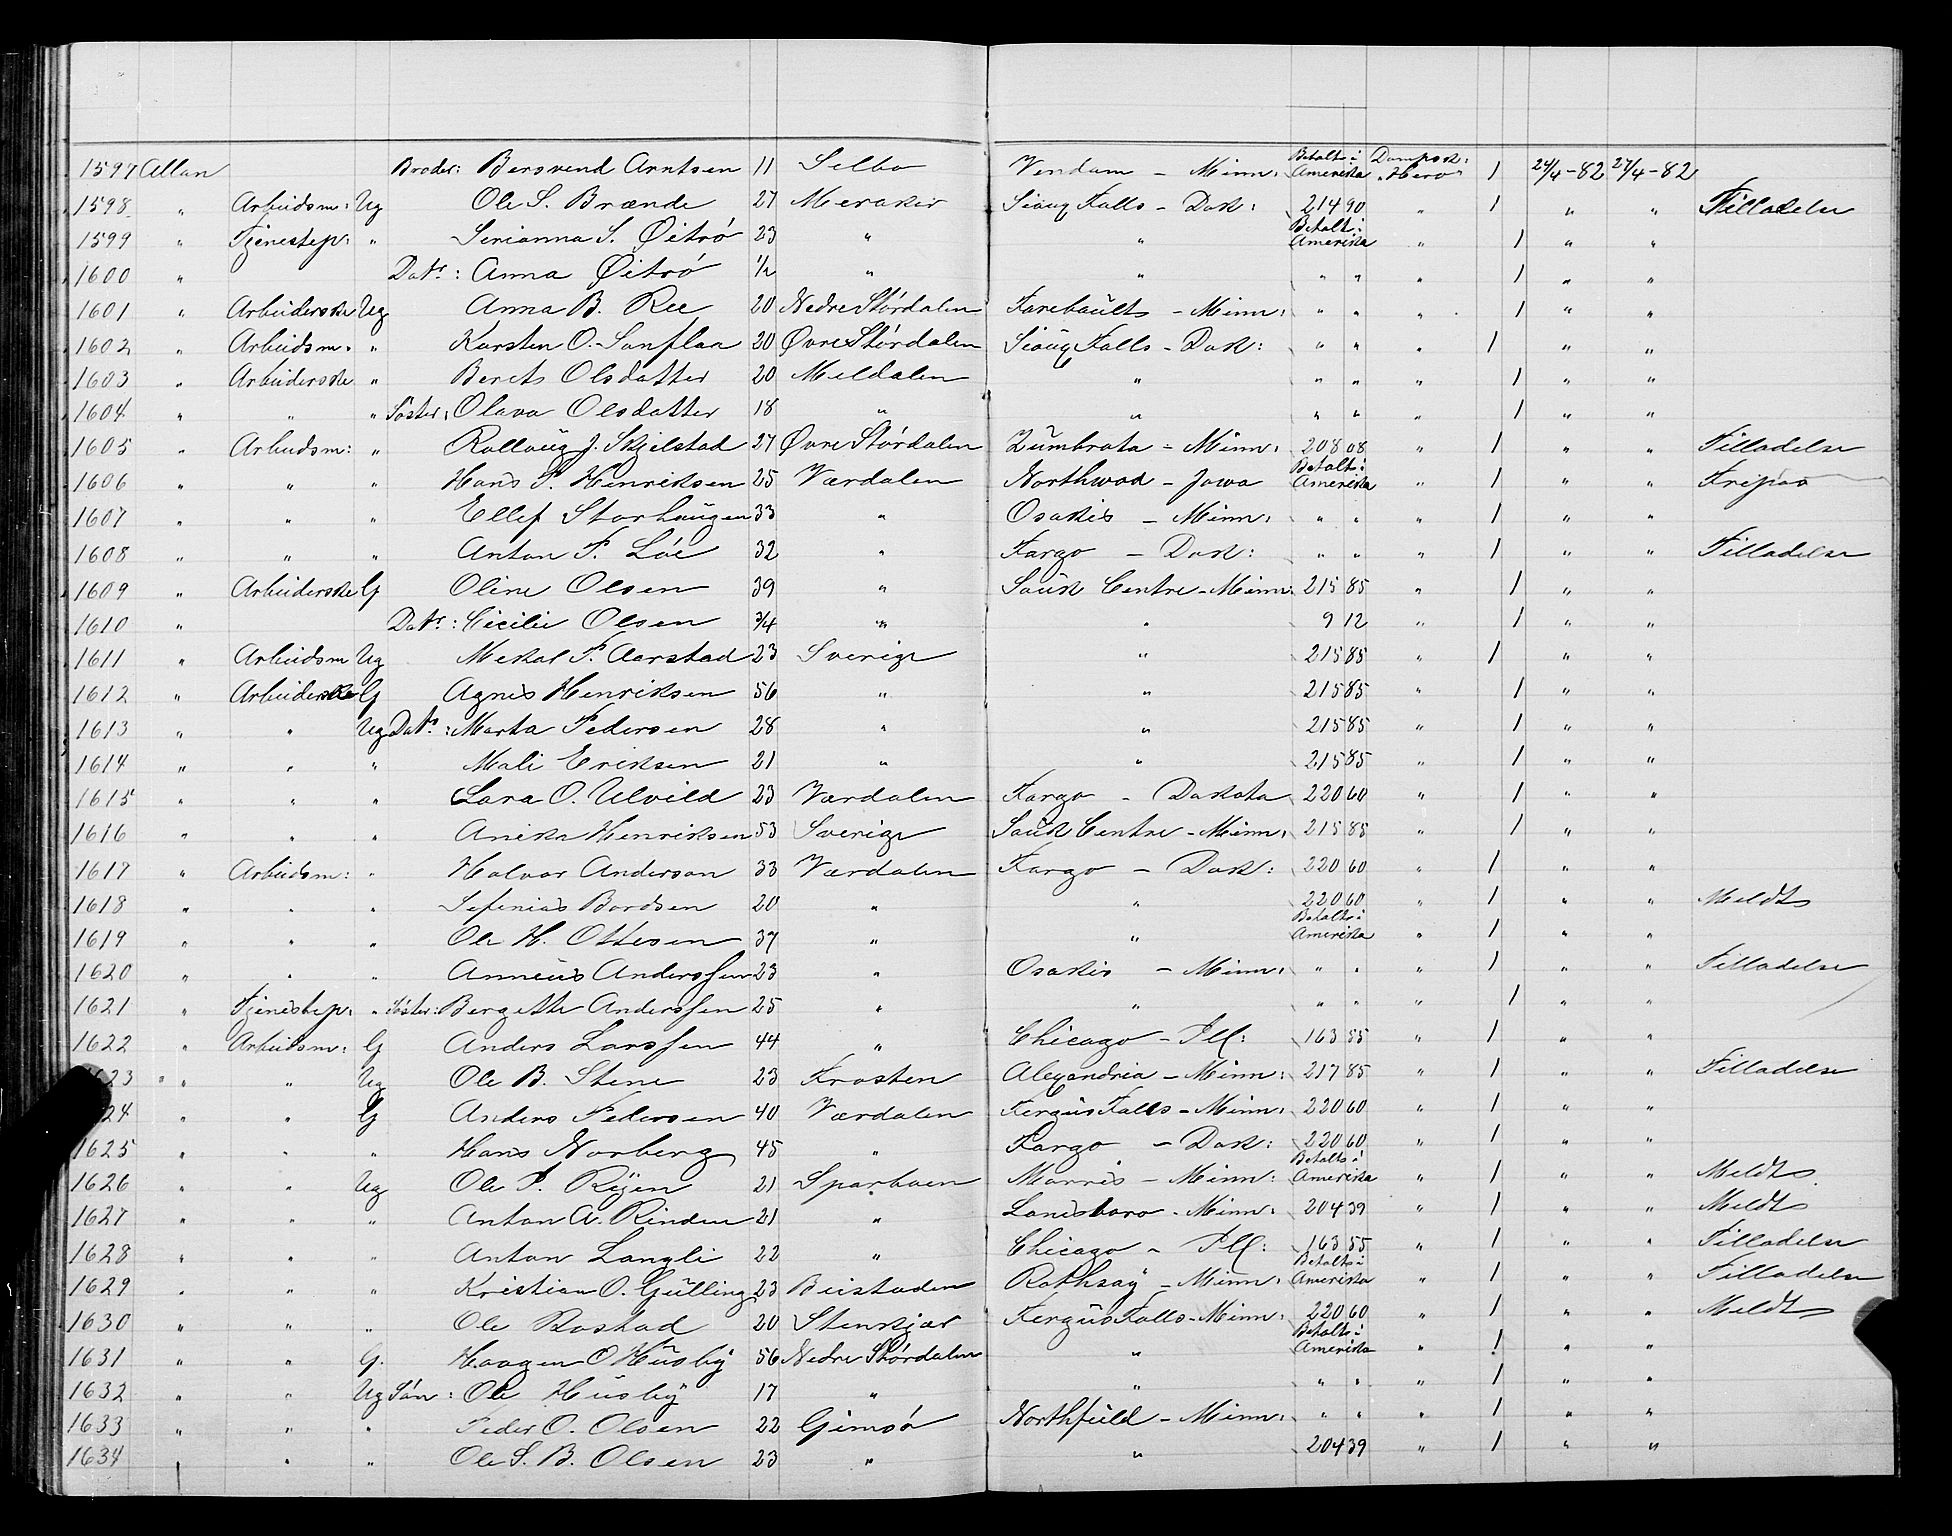 1597 Allan Broder: Bersvend Arntsen 11 Selbo Vendum - Minn: Betalt i Amerika Dampsk: "Hero" 1 24/4-82 27/4-82
1598 " Arbeidsm: Ug Ole S. Brænde 27 Meraker Sioux Falls - Dak: 214 90 " 1 " " Tilladelse
1599 " Tjenestep: " Serianna S. Øitrø 23 " " Betalt i Amerika " 1 " "
1600 " Datr: Anna Øitrø 1/2 " " " " 1 " "
1601 " Arbeiderske Ug Anna B. Ree 20 Nedre Størdalen Farebault - Minn: " " " 1 " "
1602 " Arbeidsm. " Karsten O. Sonflaa 20 Øvre Størdalen Sioux Falls - Dak: " " " 1 " "
1603 " Arbeiderske " Berets Olsdatter 20 Meldalen " " " " 1 " "
1604 " " " Søster: Olava Olsdatter 18 " " " " " 1 " "
1605 " Arbeidsm: " Rollaug J. Skjelstad 27 Øvre Størdalen Zumbrota - Minn: 208 08 " 1 " " Tilladelse
1606 " " " Hans P. Henriksen 25 Værdalen Northwod - Jowa Betalt i Amerika " 1 " " Fripas
1607 " " " Ellef Storhaugen 33 " Osakis - Minn: " " " 1 " "
1608 " " " Anton P. Løe 32 " Fargo - Dak: " " " 1 " " Tilladelse
1609 " Arbeiderske G Oline Olsen 39 " Sauk Centre - Minn: 215 85 " 1 " "
1610 " Datr: Cicilie Olsen 3/4 " " 9 12 " 1 " "
1611 " Arbeidsm Ug Mekal P. Aarstad 23 Sverige " 215 85 " 1 " "
1612 " Arbeiderske G Agnes Henriksen 56 " " 215 85 " 1 " "
1613 " " Ug Datr: Marta Pedersen 28 " " 215 85 " 1 " "
1614 " " " Mali Eriksen 21 " " 215 85 " 1 " "
1615 " " " Lara O. Ulvild 23 Værdalen Fargo - Dakota 220 60 " 1 " "
1616 " " " Anika Henriksen 53 Sverige Sauk Centre - Minn: 215 85 " 1 " "
1617 " Arbeidsm: " Halvor Anderson 33 Værdalen Fargo - Dak: 220 60 " 1 " "
1618 " " " Sefenias Bordsen 20 " " 220 60 " 1 " " Meldt
1619 " " " Ole H. Ottesen 37 " " Betalt i Amerika " 1 " "
1620 " " " Anneus Anderssen 23 " Osakis - Minn: " " " 1 " " Tilladelse
1621 " Tjenestep: " Søster: Bergette Anderssen 25 " " " " " 1 " "
1622 " Arbeidsm: G Anders Larssen 44 " Chicago - Ill: 163 55 " 1 " "
23 " " Ug Ole B. Stene 23 Frosten Alexandria - Minn: 217 85 " 1 " " Tilladelse
24 " " G Anders Pedersen 40 Værdalen Fergus Falls - Minn: 220 60 " 1 " "
1625 " " " Hans Norberg 45 " Fargo - Dak: 220 60 " 1 " "
1626 " " Ug Ole P. Reyen 21 Sparboen Morris - Minn: Betalt i Amerika " 1 " " Meldt
1627 " " " Anton A. Rinden 21 " Lanesboro - Minn: 204 39 " 1 " " Meldt
1628 " " " Anton Langli 22 " Chicago - Ill: 163 55 " 1 " " Tilladelse
1629 " " " Kristian O. Gulling 23 Beistaden Rothsay - Minn: Betalt i Amerika " 1 " " Tilladelse
1630 " " " Ole Rostad 20 Stenkjær Fergus Falls - Minn: 220 60 " 1 " " Meldt
1631 " " G. Haagen O Husby 56 Nedre Størdalen " Betalt i Amerika " 1 " "
1632 " " Ug Søn: Ole Husby 17 " " " " " 1 " "
1633 " " " Peder O. Olsen 22 Gimsø Northfield - Minn: " " " 1 " "
1634 " " Ole S. B. Olsen 23 " " 204 39 " 1 " "